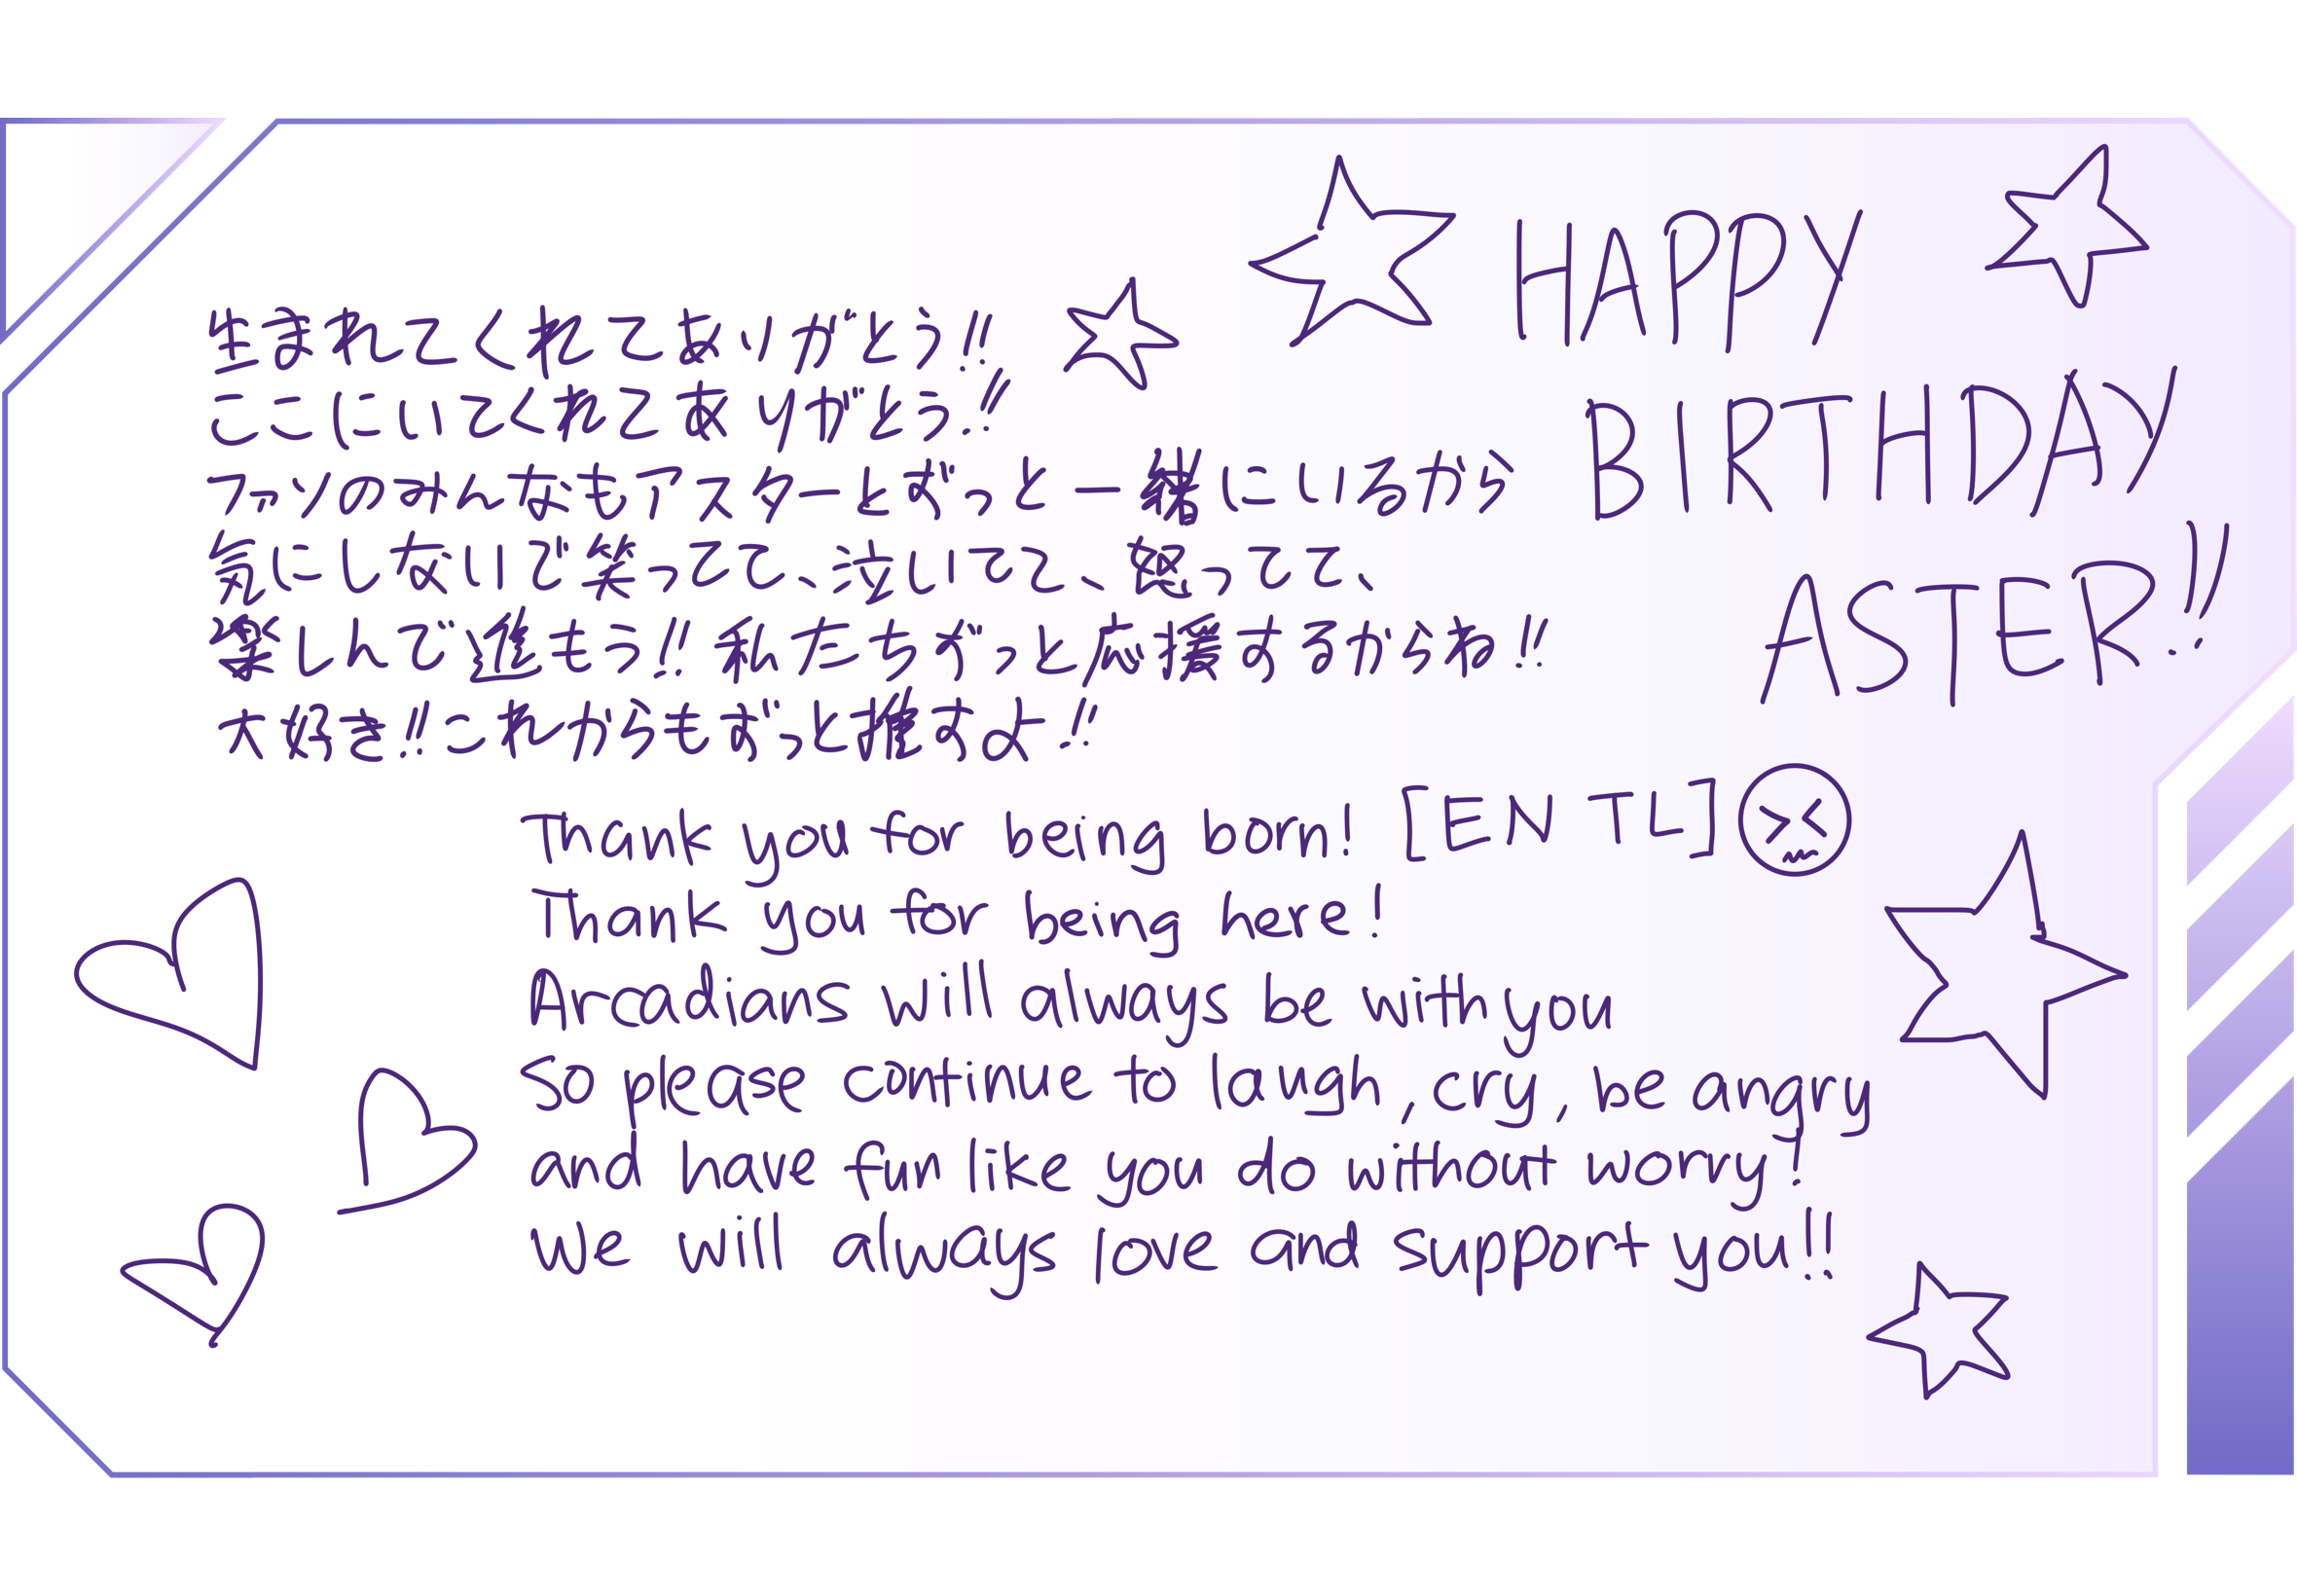 HAPPY
BIRTHDAY
ASTER!!
生まれてくれてありがとう!!
ここにいてくれてありがとう!!
ファンのみんなもアスターとずっと一緒にいるから
気にしないで笑ってて、泣いてて、怒ってて、
楽しんで進もう!! 私たちずっと応援するからね!!
大好き!!これからもずっと推すよ!!
Thank you for being born! [EN TL]
Thank you for being here!
Arcadians will always be with you
So please continue to laugh, cry, be angry
and have fun like you do without worry!
We will always love and support you!!